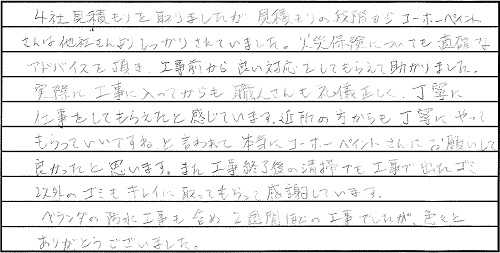 4社見積もりを取りましたが見積もりの段階からユーホーペイント
さんは他社さんよりしっかりされていました。火災保険についても適確な
アドバイスを頂き、工事前から良い対応をしてもらえて助かりました。
実際に工事に入ってからも職人さんも礼儀正しく、丁寧に
仕事をしてもらえたと感じています。近所の方からも丁寧にやって
もらっていいですね。と言われて本当にユーホーペイントさんにお願いして
良かったと思います。また工事終了後の清掃でも工事で出たゴミ
以外のゴミもキレイに取ってもらって感謝しています。
ベランダの防水工事も含め2週間ほどの工事でしたが、色々と
ありがとうございました。